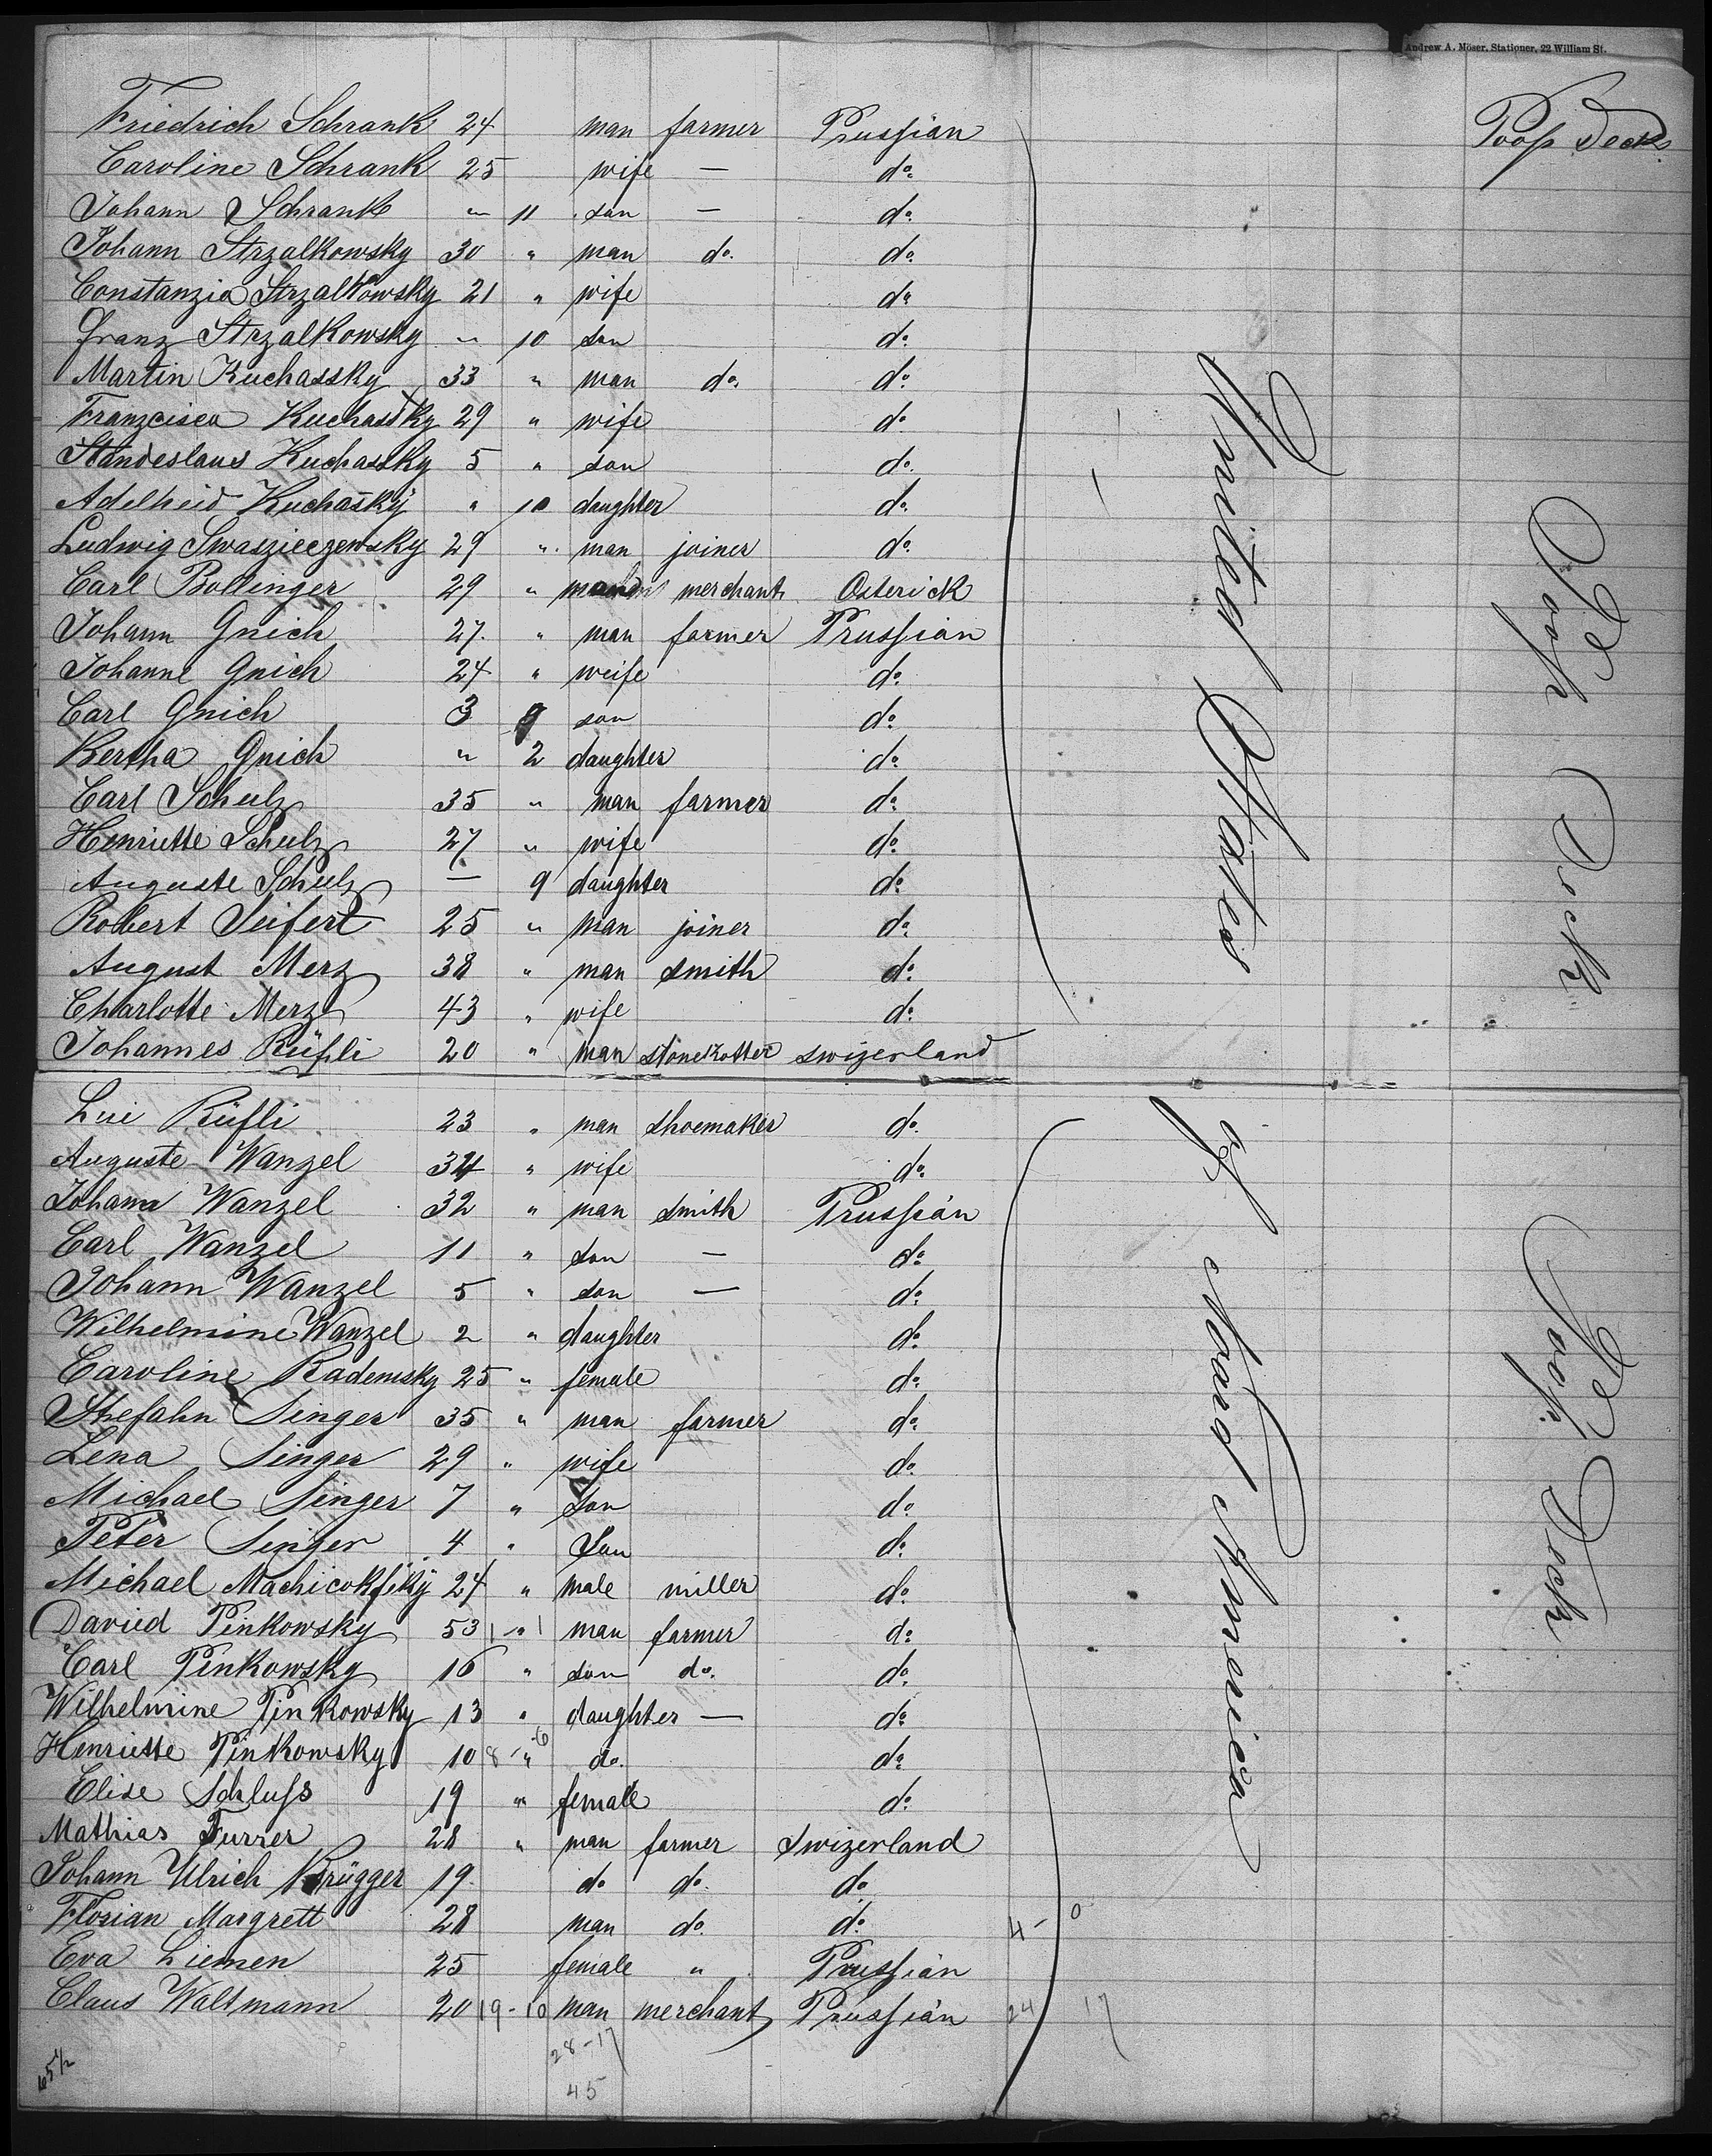 Andrew A. Möser, Stationer, 22 William St.
Poop Deck
Friedrich Schrank 24 man farmer Prussian
Caroline Schrank 25 wife — do.
Johann Schrank " 11 son — do.
Johann Strzalkowsky 30 " man do. do.
Constanzia Strzalkowsky 21 " wife do.
Franz Strzalkowsky " 10 son do.
Martin Kuchassky 33 " man do. do.
Franzcisca Kuchassky 29 " wife do.
Standeslaus Kuchassky 5 " son do.
Adelheid Kuchasky " 10 daughter do.
Ludwig Swaszieczewsky 29 " man joiner do.
Carl Bollinger 29 " man merchant Osterick
Johann Gnich 27 " man farmer Prussian
Johanne Gnich 24 " weife do.
Carl Gnich 3 9 son do.
Bertha Gnich " 2 daughter do.
Carl Schulz 35 " man farmer do.
Henriette Schulz 27 " wife do.
Auguste Schulz — 9 daughter do.
Robert Seifert 25 " man joiner do.
August Merz 38 " man smith do.
Charlotte Merz 43 " wife do.
Johannes Rüfli 20 " man stonekotter swizerland
Lui Rüfli 23 " man shoemaker do.
Auguste Wanzel 34 " wife do.
Johann Wanzel 32 " man smith Prussian
Carl Wanzel 11 " son — do.
Johann Wanzel 5 " son — do.
Wilhelmine Wanzel 2 " daughter do.
Caroline Rademsky 25 " female do.
Sthefahn Singer 35 " man farmer do.
Lena Singer 29 " wife do.
Michael Singer 7 " son do.
Peter Singer 4 " son do.
Michael 24 " male miller do.
David Pinkowsky 53 1 " 1 man farmer do.
Carl Pinkowsky 16 " son do. do.
Wilhelmine Pinkowsky 13 " daughter — do.
Henriette Pinkowsky 10 8 - 6 " do. do.
Elise Schluss 19 " female do.
Mathias Furrer 28 " man farmer swizerland
Johann Ulrich Brügger 19 do do. do.
Florian Margrett 28 man do. do. 4 - 0
Eva Liemen 25 female " Prussian
Claus Waltmann 20 19 - 10 man merchant Prussian 24 17
28 - 17
45
65 1/2
United States
of Noard America
Poop Deck
Poop Deck